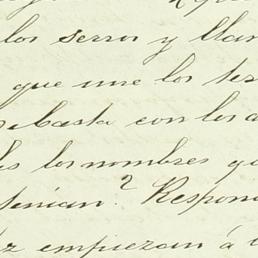 los serros y llan
que une los te
basta con los d
los nombres y
tenian? Respon
empiezan á